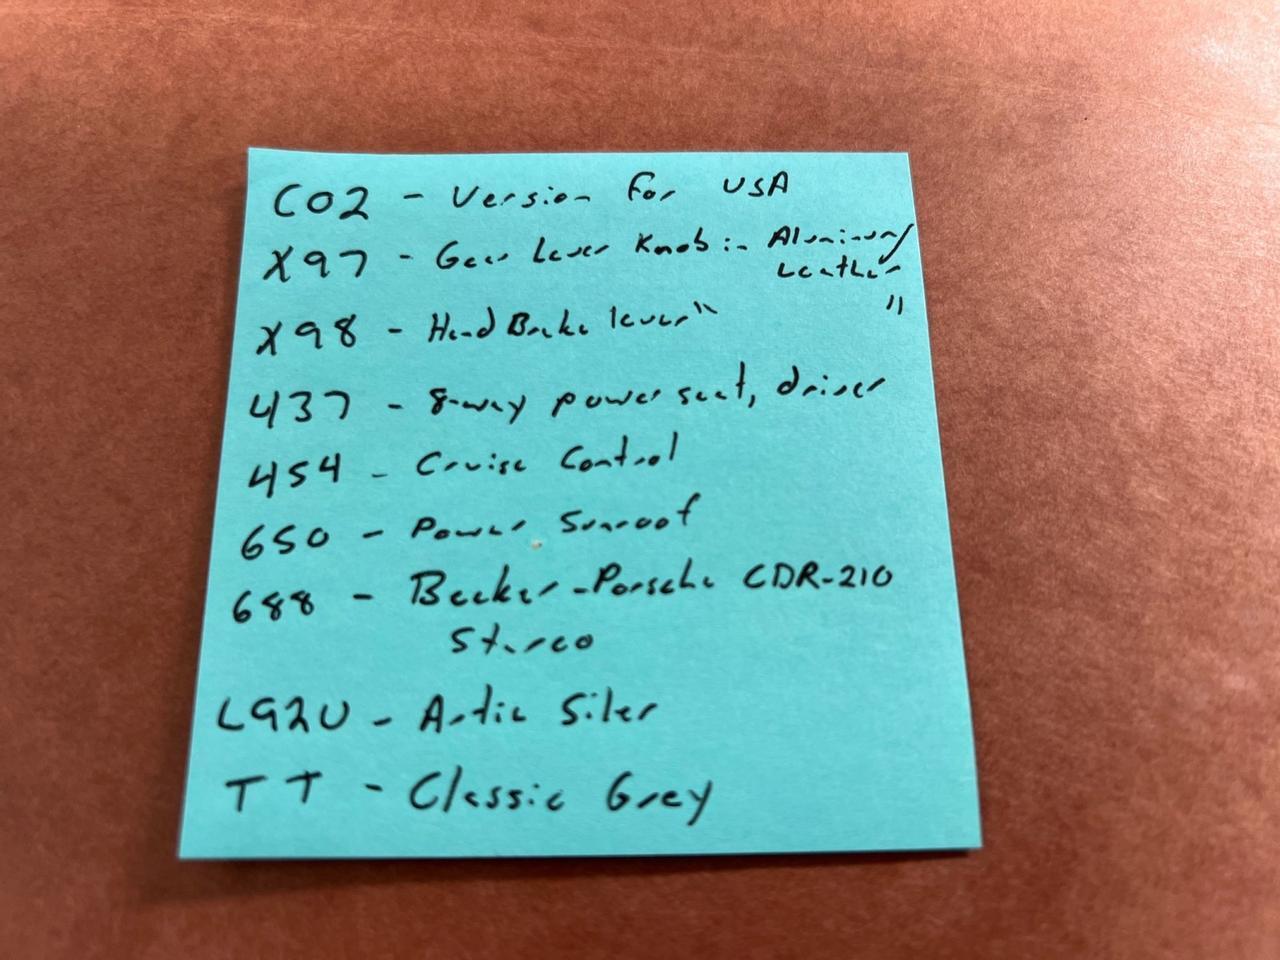 C02 - Version for USA
X97 - Gear Lever Knob in Aluminum/
Leather
X98 - Hand Brake lever " "
437 - 8-way power seat, driver
454 - Cruise Control
650 - Power Sunroof
688 - Becker-Porsche CDR-210
Stereo
L92U - Artic Siler
TT - Classic Grey